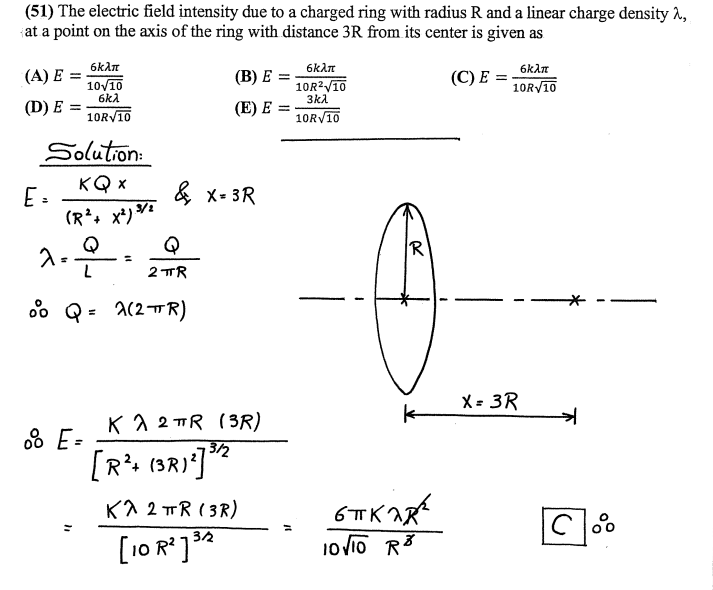 (51) The electric field intensity due to a charged ring with radius R and a linear charge density λ,
at a point on the axis of the ring with distance 3R from its center is given as
(A) E = 6kλπ/10√10 (B) E = 6kλπ/10R²√10 (C) E = 6kλπ/10R√10
(D) E = 6kλ/10R√10 (E) E = 3kλ/10R√10
Solution:
E = KQx/(R² + x²)^3/2 & x = 3R
λ = Q/L = Q/2πR
R
∴ Q = λ(2πR)
x = 3R
∴ E = Kλ2πR (3R)/[R² + (3R)²]^3/2
= Kλ2πR (3R)/[10R²]^3/2 = 6πKλR²/10√10 R³
C ∴